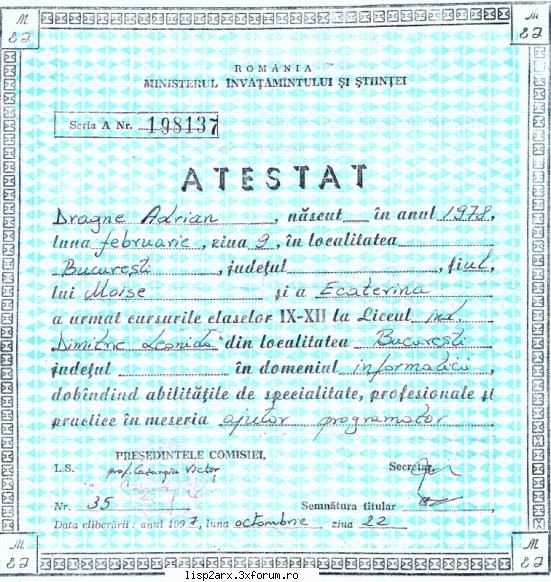 M
82
M
82
ROMÂNIA
MINISTERUL ÎNVĂŢĂMÎNTULUI ŞI ŞTIINŢEI
Seria A Nr. 198137
ATESTAT
Dragne Adrian, născut în anul 1978,
luna februarie, ziua 9, în localitatea
Bucureşti, judeţul , fiul,
lui Moise şi a Ecaterina
a urmat cursurile claselor IX-XII la Liceul ind.
Dimitrie Leonida" din localitatea Bucureşti
judeţul în domeniul informatică,
dobîndind abilităţile de specialitate, profesionale şi
practice în meseria ajutor programator
PREŞEDINTELE COMISIEI,
L.S. prof. Victor Secretar,
Nr. 35 Semnătura titular
Data eliberării : anul 1997, luna octombrie ziua 22
M
82
M
82
lisp2arx.3xforum.ro